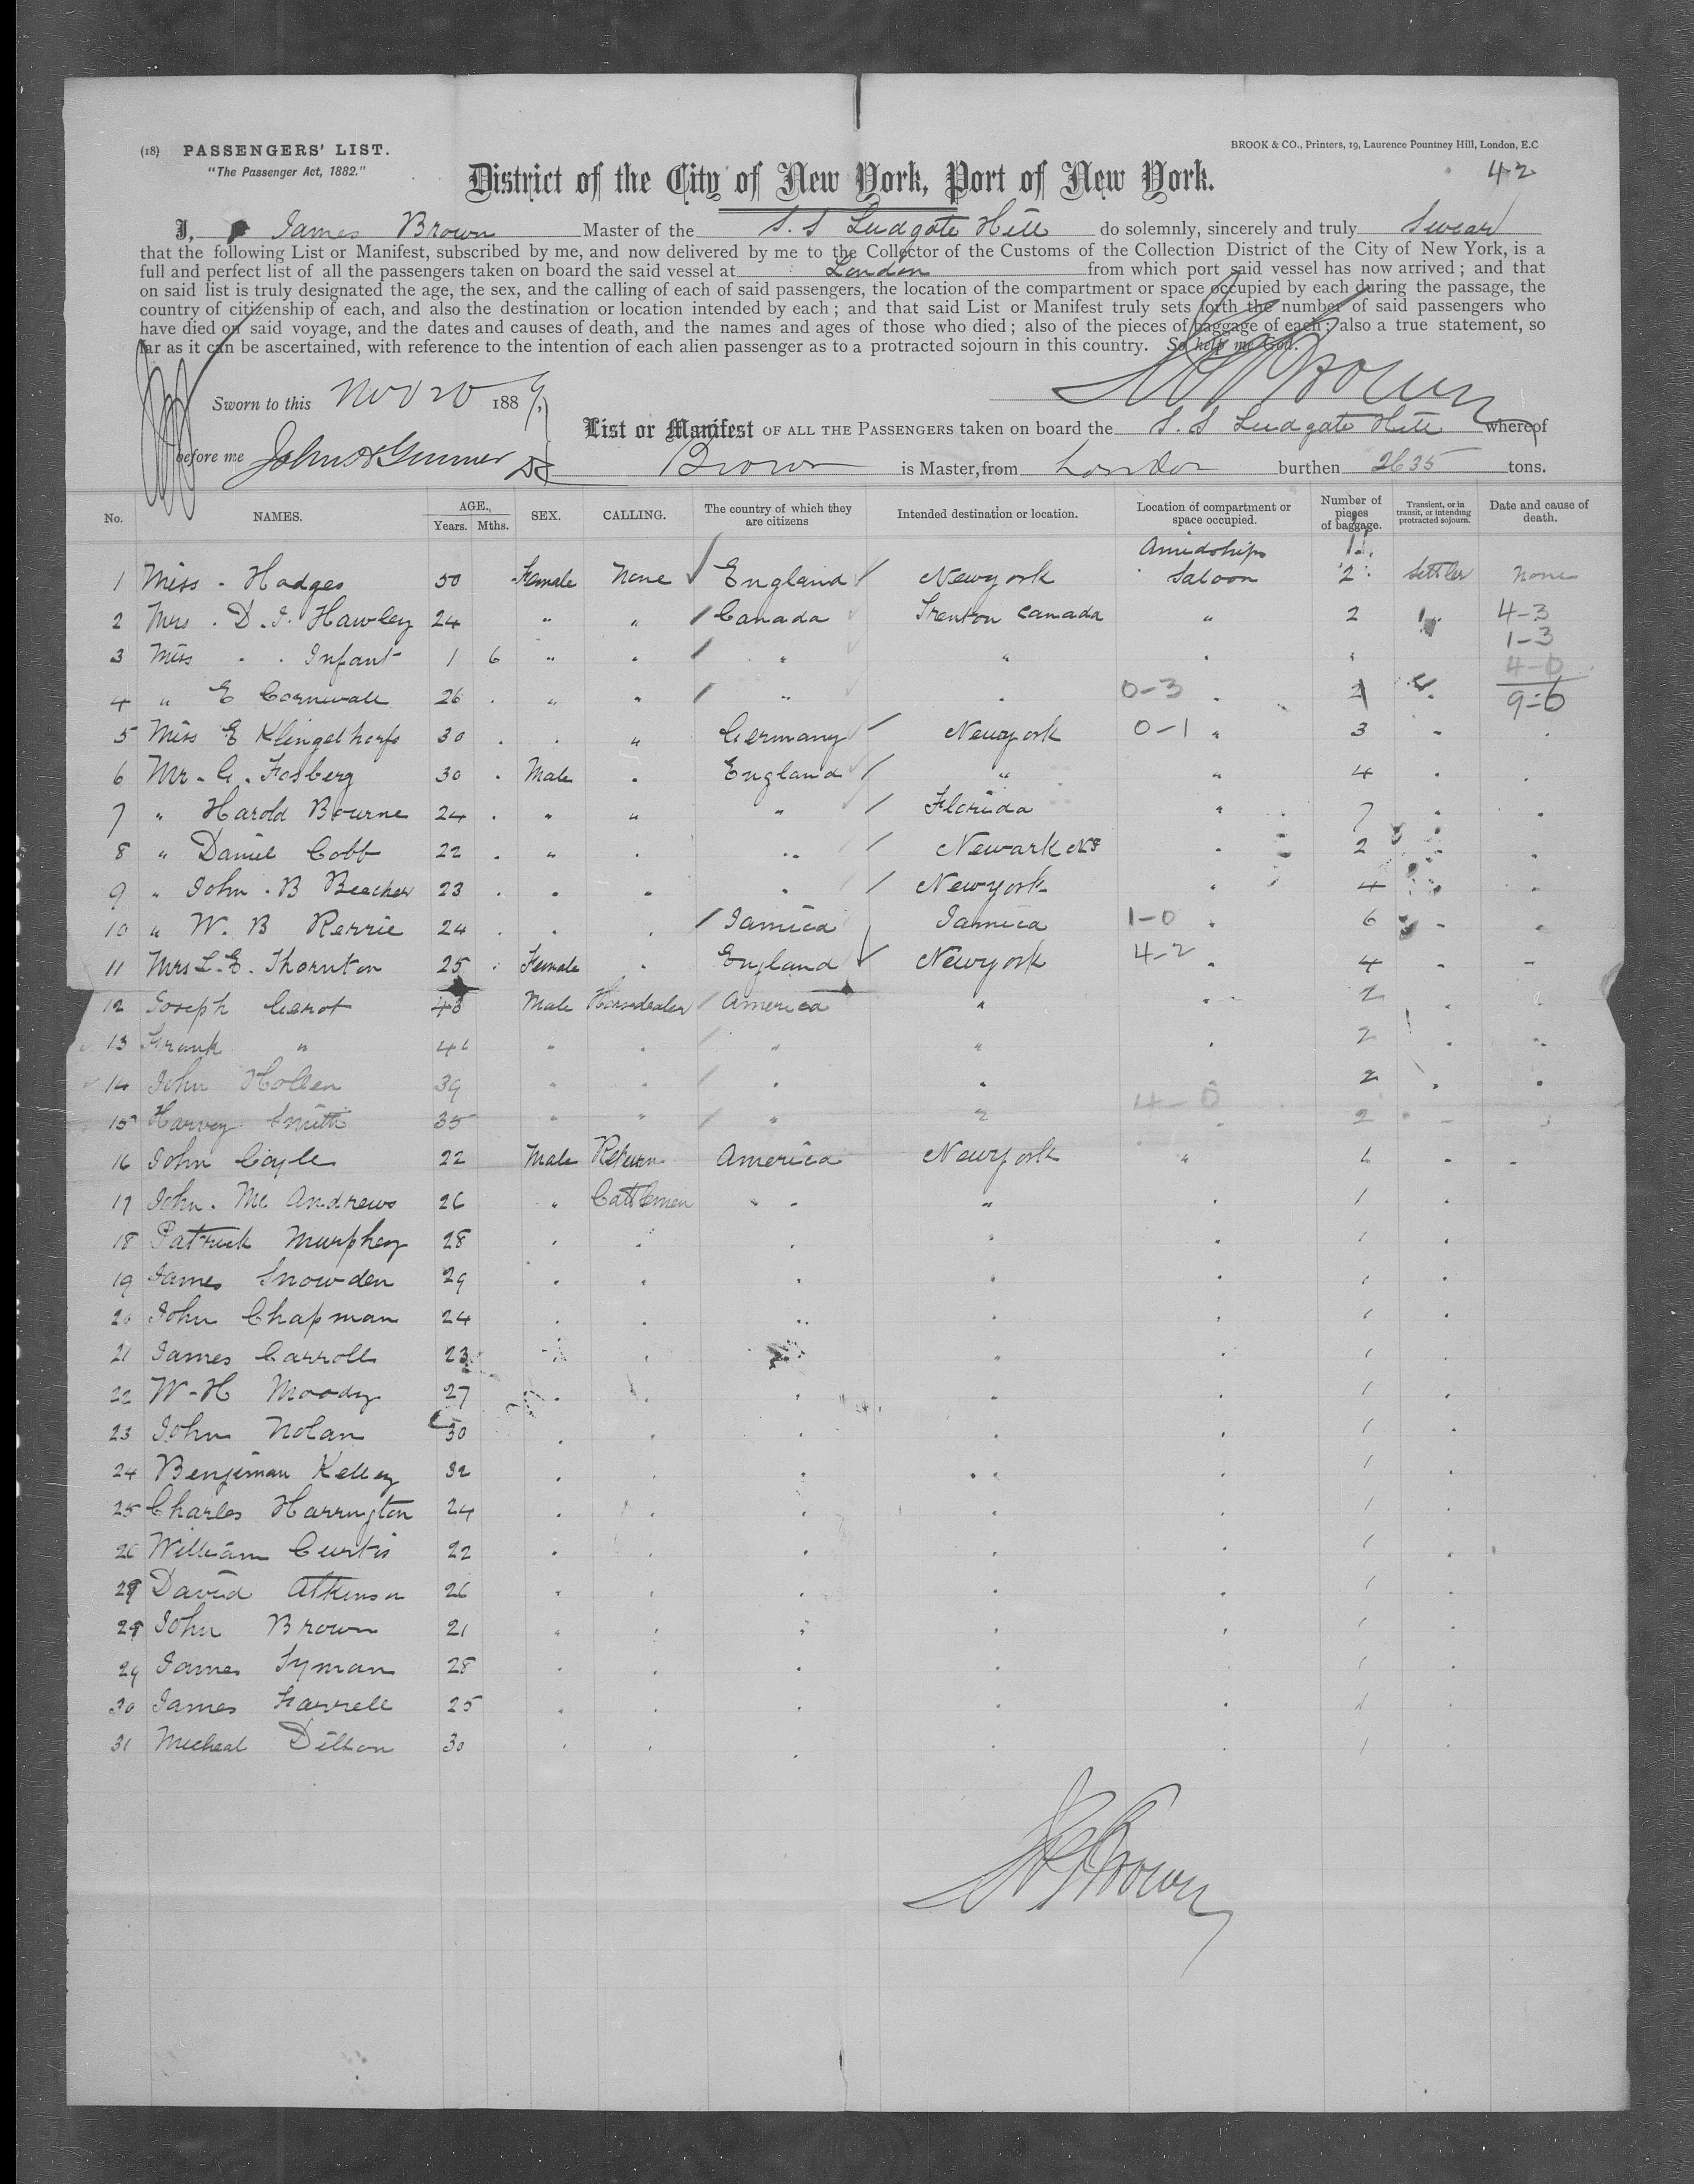 (18) PASSENGERS' LIST.
"The Passenger Act, 1882."
BROOK & CO., Printers, 19, Laurence Pountney Hill, London, E.C
42
District of the City of New York, Port of New York.
I, James Brown Master of the S. S Ludgate Hill do solemnly, sincerely and truly Swear
that the following List or Manifest, subscribed by me, and now delivered by me to the Collector of the Customs of the Collection District of the City of New York, is a
full and perfect list of all the passengers taken on board the said vessel at London from which port said vessel has now arrived; and that
on said list is truly designated the age, the sex, and the calling of each of said passengers, the location of the compartment or space occupied by each during the passage, the
country of citizenship of each, and also the destination or location intended by each; and that said List or Manifest truly sets forth the number of said passengers who
have died on said voyage, and the dates and causes of death, and the names and ages of those who died; also of the pieces of baggage of each; also a true statement, so
far as it can be ascertained, with reference to the intention of each alien passenger as to a protracted sojourn in this country. So help me God.
Brown
Sworn to this Nov 20 188
List or Manifest OF ALL THE PASSENGERS taken on board the S. S Ludgate Hill whereof
before me John Brown is Master, from London burthen 2635 tons.
No. NAMES. AGE. Years. Mths. SEX. CALLING. The country of which they are citizens Intended destination or location. Location of compartment or space occupied. Number of pieces of baggage. Transient, or in transit, or intending protracted sojourn. Date and cause of death.
Amidships
1 Miss . Hodges 50 Female None England New york Saloon 2 Settler None
2 Mrs . D. I. Hawley 24 " " Canada Trenton Canada " 2 4-3
1-3
3 Miss . . Infant 1 6 " " " " "
4-0
4 " E Cornwall 26 " " " " 0-3 9=6
5 Miss E Klingelhorfs 30 " " Germany New york 0-1 " 3
6 Mr. G. Fosberg 30 Male " England " " 4
7 " Harold Bourne 24 " " " Florida " 7
8 " Daniel Cobb 22 " " " Newark NJ " 2
9 " John . B Beecher 23 " " " New york " 4
10 " W. B Rerrie 24 " " Jamica Jamica 1-0 " 6
11 Mrs L. E. Thornton 25 Female " England New york 4-2 " 4
12 Joseph Cerot 43 Male Horsedealer America " " 2
13 Frank " " " " " " 2
14 John Hollen 39 " " " " " 2
15 Harvey Smith 35 " " " " 4-0 " 2
16 John Coyle 22 Male Return America New york " 1
17 John . Mc Andrews 26 " Cattlemen " " " 1
18 Patrick Murphey 28 " " " " " 1
19 James Snowden 29 " " " " " 1
20 John Chapman 24 " " " " " 1
21 James Carroll 23 " " " " " 1
22 W-H Moody 27 " " " " " 1
23 John Nolan 30 " " " " " 1
24 Benjiman Kelley 32 " " " " " 1
25 Charles Harrington 24 " " " " " 1
26 William Curtis 22 " " " " " 1
27 David Atkinson 26 " " " " " 1
28 John Brown 21 " " " " " 1
29 James Lyman 28 " " " " " 1
30 James Farrell 25 " " " " " 1
31 Micheal Dillon 30 " " " " " 1
Brown